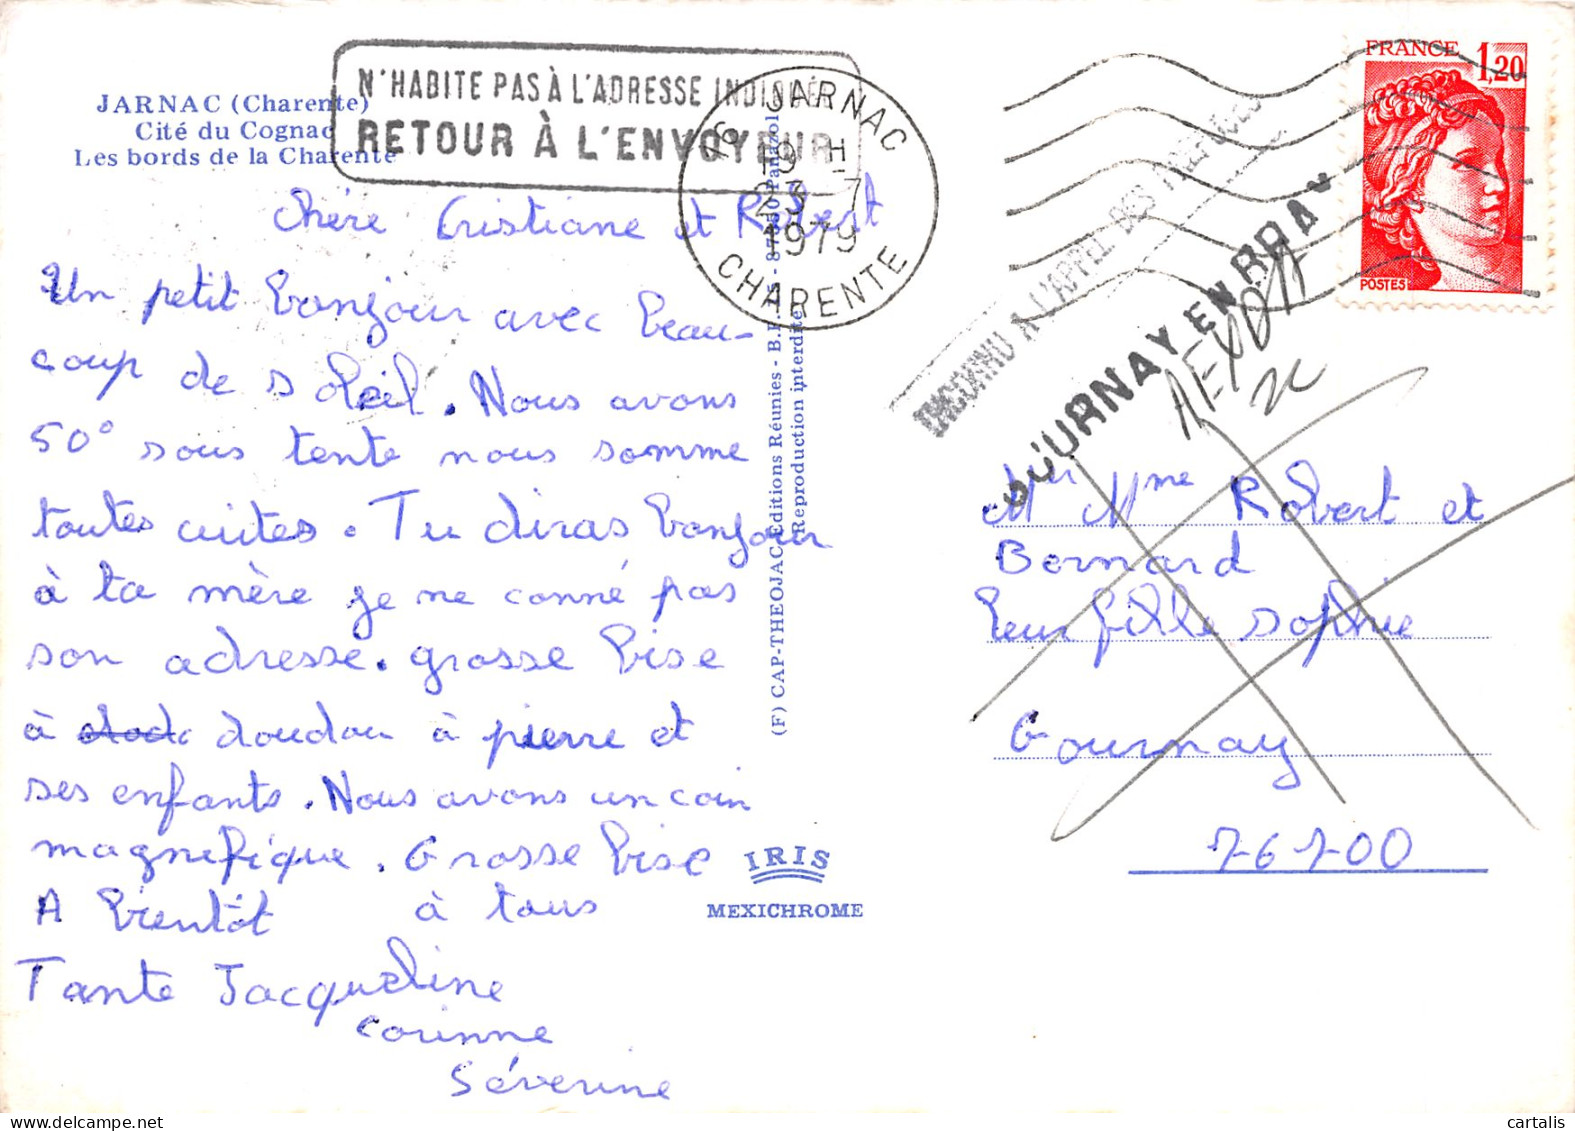 JARNAC (Charente)
Cité du Cognac
Les bords de la Charente
N'HABITE PAS À L'ADRESSE INDIQUÉE
RETOUR À L'ENVOYEUR
16 JARNAC
19 H
23-7
1979
CHARENTE
FRANCE 1,20
POSTES
INCONNU A L'APPEL DES PREPOSES
GOURNAY EN BRAY
Chére Cristiane et Robert
Un petit bonjour avec beau-
coup de soleil. Nous avons
50° sous tente nous somme
toutes cuites. Tu diras bonjour
à ta mère je ne conné pas
son adresse. grosse bise
à doudou à pierre et
ses enfants. Nous avons un coin
magnifique. Grosse bise
A bientôt à tous
Tante Jacqueline
Corinne
Séverine
(F) CAP-THEOJAC Editions Réunies - B.P. - Panazol
Reproduction interdite
IRIS
MEXICHROME
Mr Mme Robert et
Bernard
leur fille sophie
Gournay
76700
cartalis